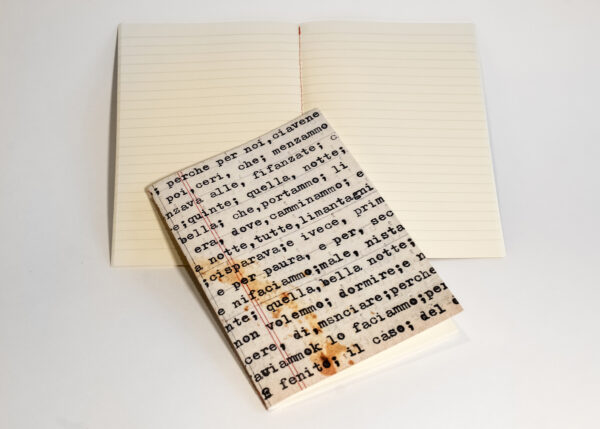 ; perche per noi,ciavene
poi,ceri, che; menzammo
nzava alle, fifanzate; c
e;quinte; quella, notte;
bella; che,portammo; li
era, dove,camminammo; e
a notte,tutte,limantagni
;cisparava;e ivece, prim
e por paura, e per, sec
e nifaciammo;male, nista
nte; quella,bella notte;
non volemmo; dormire;e n
cere, di,msnciare;perche
aviammok lo faciammo;per
fenito; il caso; del